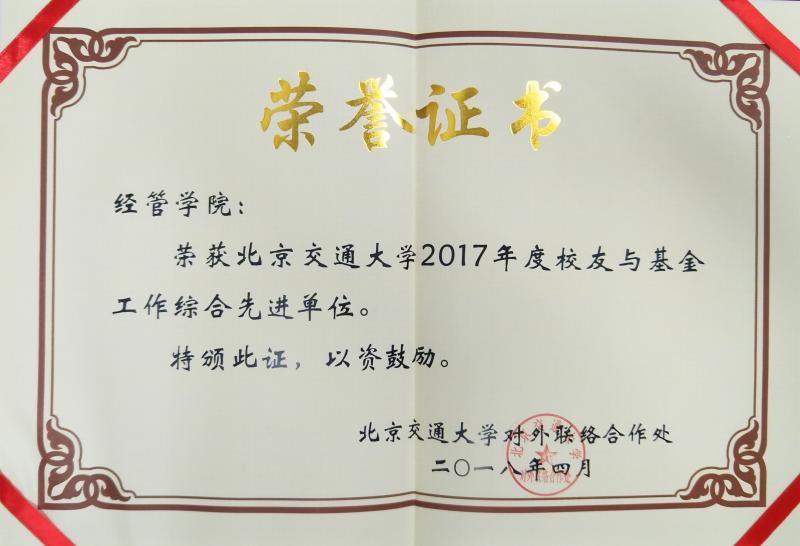 荣誉证书
经管学院：
荣获北京交通大学2017年度校友与基金
工作综合先进单位。
特颁此证，以资鼓励。
北京交通大学对外联络合作处
二〇一八年四月
北京交通大学
对外联络合作处